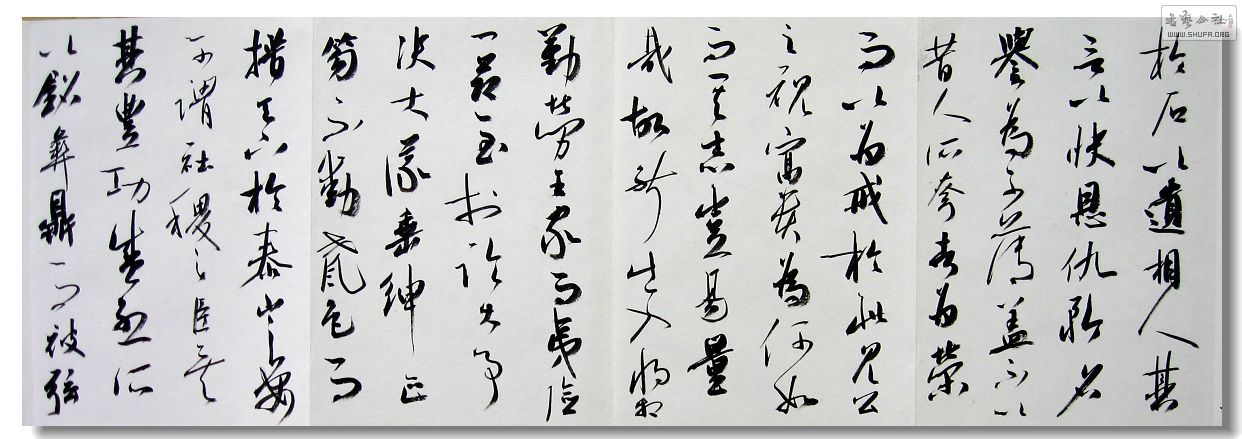 於石以遺相人其
言以快恩仇矜名
譽為可薄蓋不以
昔人所夸者為榮
而以為戒於此見公
之視富貴為何如
而其志豈易量
哉故能出入將相
勤勞王家而夷險
一節至於臨大事
決大議垂紳正
笏不動聲色而
措天下於泰山之安
可謂社稷之臣矣
其豐功盛烈所
以銘彝鼎而被弦
書藝公社
WWW.SHUFA.ORG